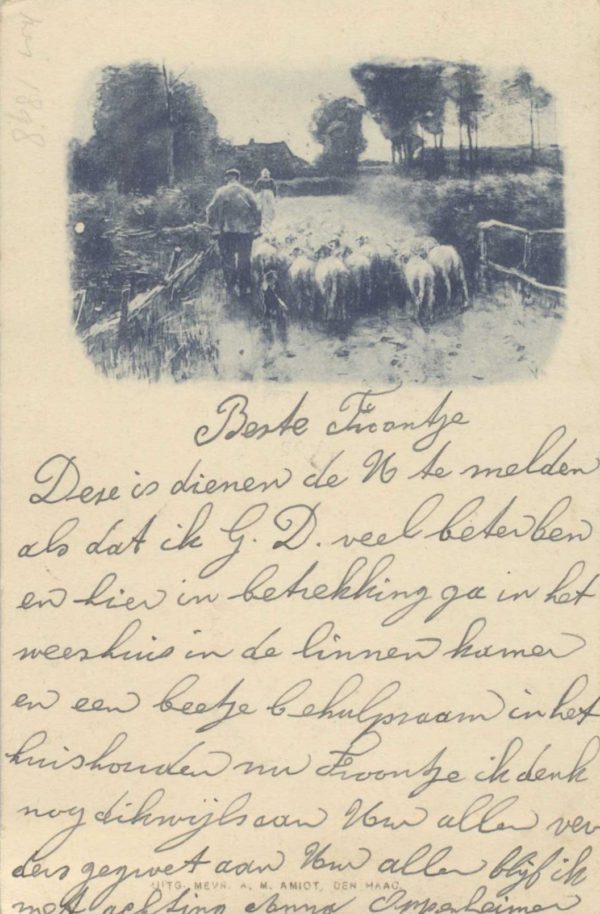 nov 1898
Beste Froontje
Deze is dienende U te melden
als dat ik G. D. veel beter ben
en hier in betrekking ga in het
weeshuis in de linnen kamer
en een beetje behulpzaam in het
huishouden nu Froontje ik denk
nog dikwijls aan Uw allen ver
ders gegroet aan Uw allen blijf ik
UITG. MEVR. A. M. AMIOT, DEN HAAG
met achting Anna Oppenheimer